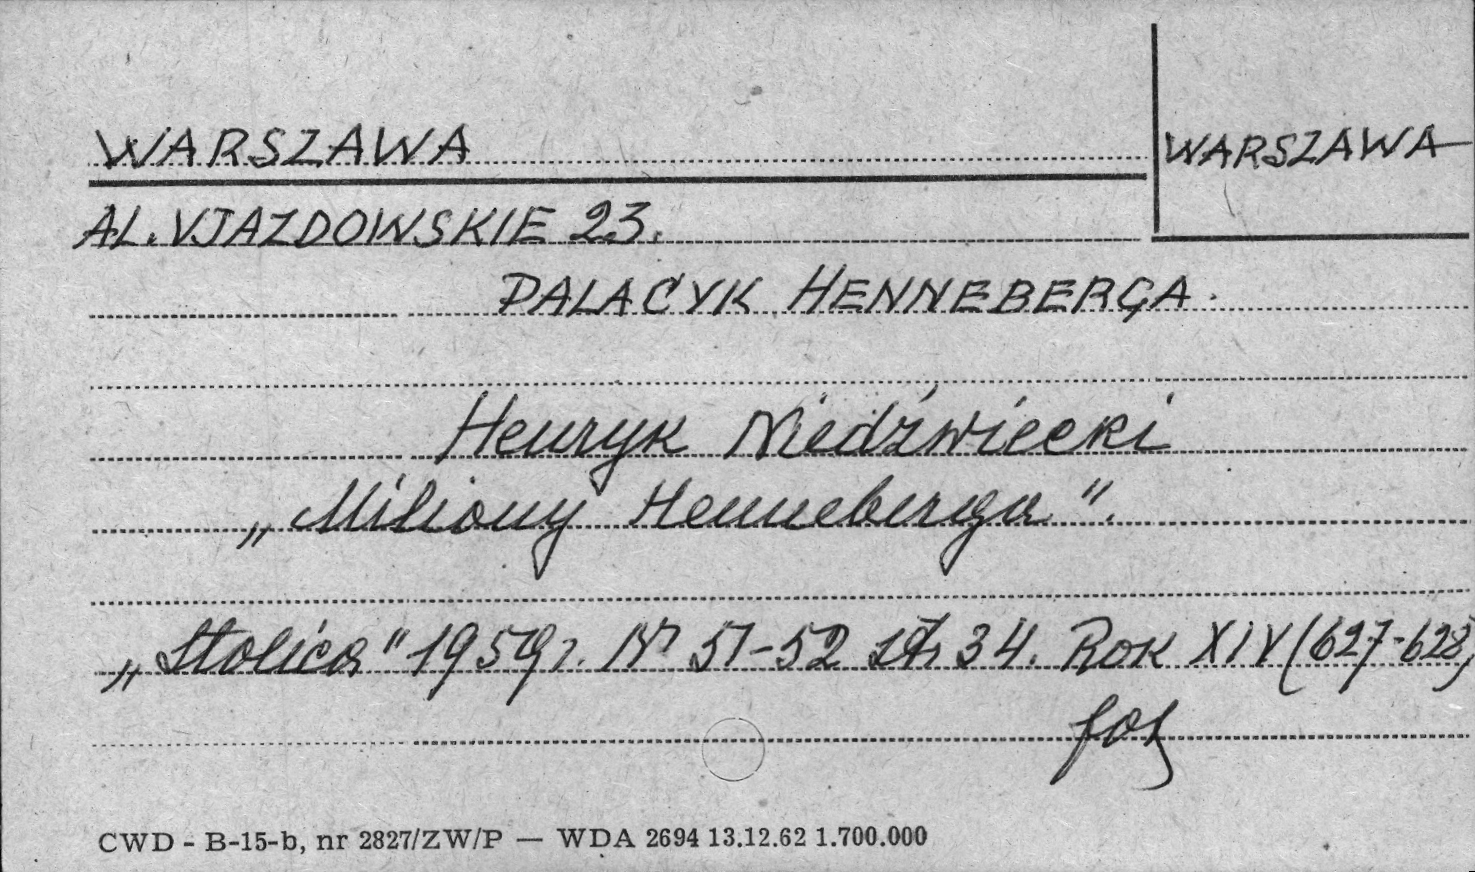 WARSZAWA
WARSZAWA
AL. UJAZDOWSKIE 23.
PALACYK HENNEBERGA.
Henryk Niedźwiecki
„Miliony Henneberga".
„Stolica" 1959 r. Nr 51-52 str 34. Rok XIV (627-628)
fot
CWD - B-15-b, nr 2827/ZW/P — WDA 2694 13.12.62 1.700.000